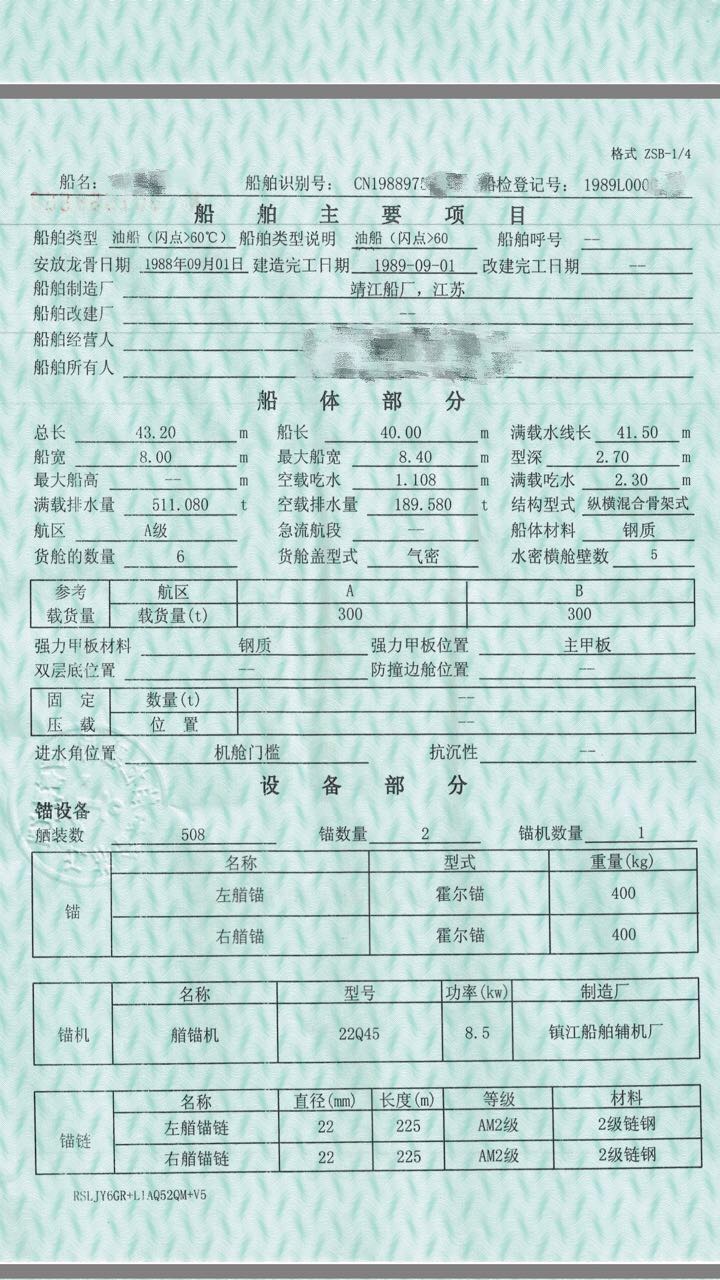 格式 ZSB-1/4
船名： 船舶识别号： CN1988975 船检登记号： 1989L000
船 舶 主 要 项 目
船舶类型 油船（闪点>60℃） 船舶类型说明 油船（闪点>60 船舶呼号 --
安放龙骨日期 1988年09月01日 建造完工日期 1989-09-01 改建完工日期 --
船舶制造厂 靖江船厂，江苏
船舶改建厂 --
船舶经营人
船舶所有人
船 体 部 分
总长 43.20 m 船长 40.00 m 满载水线长 41.50 m
船宽 8.00 m 最大船宽 8.40 m 型深 2.70 m
最大船高 -- m 空载吃水 1.108 m 满载吃水 2.30 m
满载排水量 511.080 t 空载排水量 189.580 t 结构型式 纵横混合骨架式
航区 A级 急流航段 -- 船体材料 钢质
货舱的数量 6 货舱盖型式 气密 水密横舱壁数 5
参考 航区 A B
载货量 载货量(t) 300 300
强力甲板材料 钢质 强力甲板位置 主甲板
双层底位置 -- 防撞边舱位置 --
固 定 数量(t) --
压 载 位 置 --
进水角位置 机舱门槛 抗沉性 --
设 备 部 分
锚设备
舾装数 508 锚数量 2 锚机数量 1
名称 型式 重量(kg)
锚 左艏锚 霍尔锚 400
右艏锚 霍尔锚 400
名称 型号 功率(kw) 制造厂
锚机 艏锚机 22Q45 8.5 镇江船舶辅机厂
名称 直径(mm) 长度(m) 等级 材料
锚链 左艏锚链 22 225 AM2级 2级链钢
右艏锚链 22 225 AM2级 2级链钢
RSLJY6GR+L1AQ52QM+V5